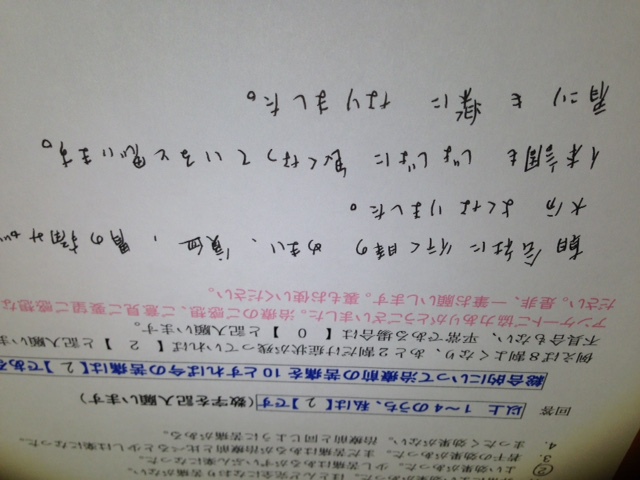 ② よい効果があった。 少し苦痛はあるがずいぶん楽になった。
3. 若干の効果があった。 まだ苦痛はあるが治療前と比べると少しは楽になった。
4. まったく効果がない。 治療前と同じように苦痛がある。
回答 以上 1〜4のうち、私は【2】です (数字を記入願います)
総合的にいって治療前の苦痛を10とすれば今の苦痛は【2】である
例えば8割よくなり、あと2割だけ症状が残っていれば【 2 】と記入願います
不具合もない、平常である場合は【 0 】と記入願います。
アンケートご協力ありがとうございました。治療のご感想、ご意見ご要望ご感想な
ださい。是非、一筆お願いします。裏もお使いください。
朝 会社に行く時の めまい、貧血、胃の痛みが
大分 よくなりました。
体調も じょじょに 良くなっていると思います。
肩こりも 楽に なりました。